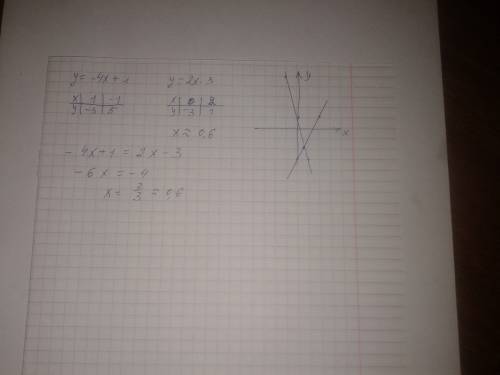 y = -4x + 1
x | 1 | -1
y | -3 | 5
y = 2x - 3
x | 0 | 2
y | -3 | 1
x ≈ 0,6
- 4x + 1 = 2x - 3
- 6x = - 4
x = 2/3 ≈ 0,6
y
x